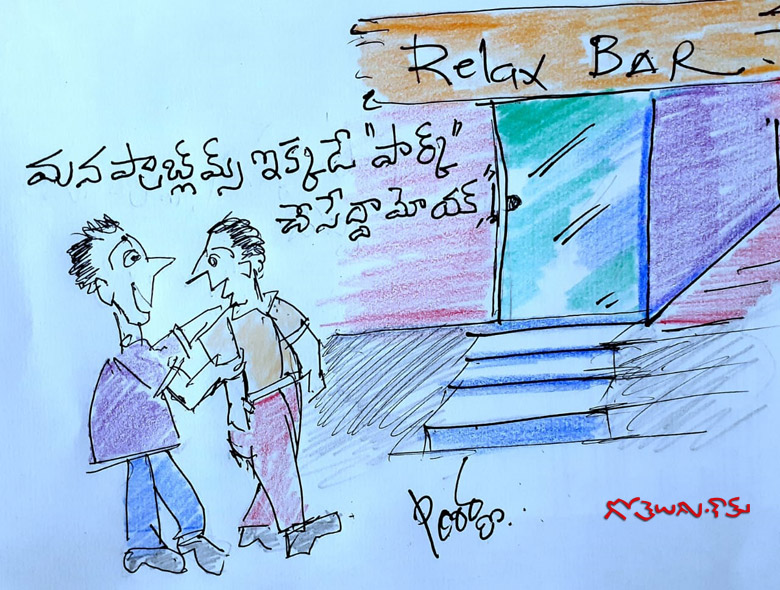 Relax BAR
మన ప్రాబ్లమ్స్ ఇక్కడే "పార్క్"
చేసేద్దామోయ్..!
గోతెలుగు.కామ్